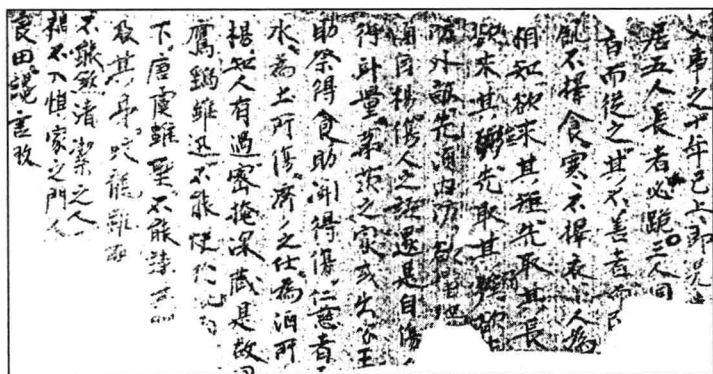 事之十年已上即兄
居五人長者必跪三人同
言而從之其不善者而
飢不擇食寒不擇衣小人為
相知欲求其短先取其長
欲求其弱先取其
防外敵先須内防欲
自楊傷人之語還是自傷
得斗量茅茨之家或出公王
助祭得食助鬪得傷仁慈者
水為土所傷濟〻之仕為酒所
楊知人有過密掩深藏是故
鷹鷂雖迅不能快於
下唐虞雖聖不能諫
及其身蛟龍雖
不能煞清潔之人
禍不入慎家之門人
良田讒言敗